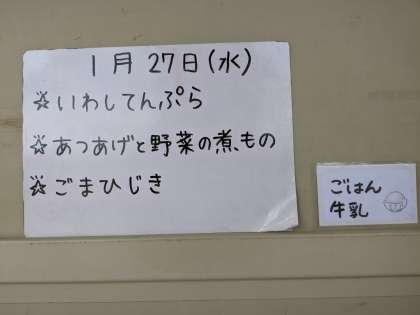 1月27日(水)
☆いわしてんぷら
☆あつあげと野菜の煮もの
☆ごまひじき
ごはん
牛乳